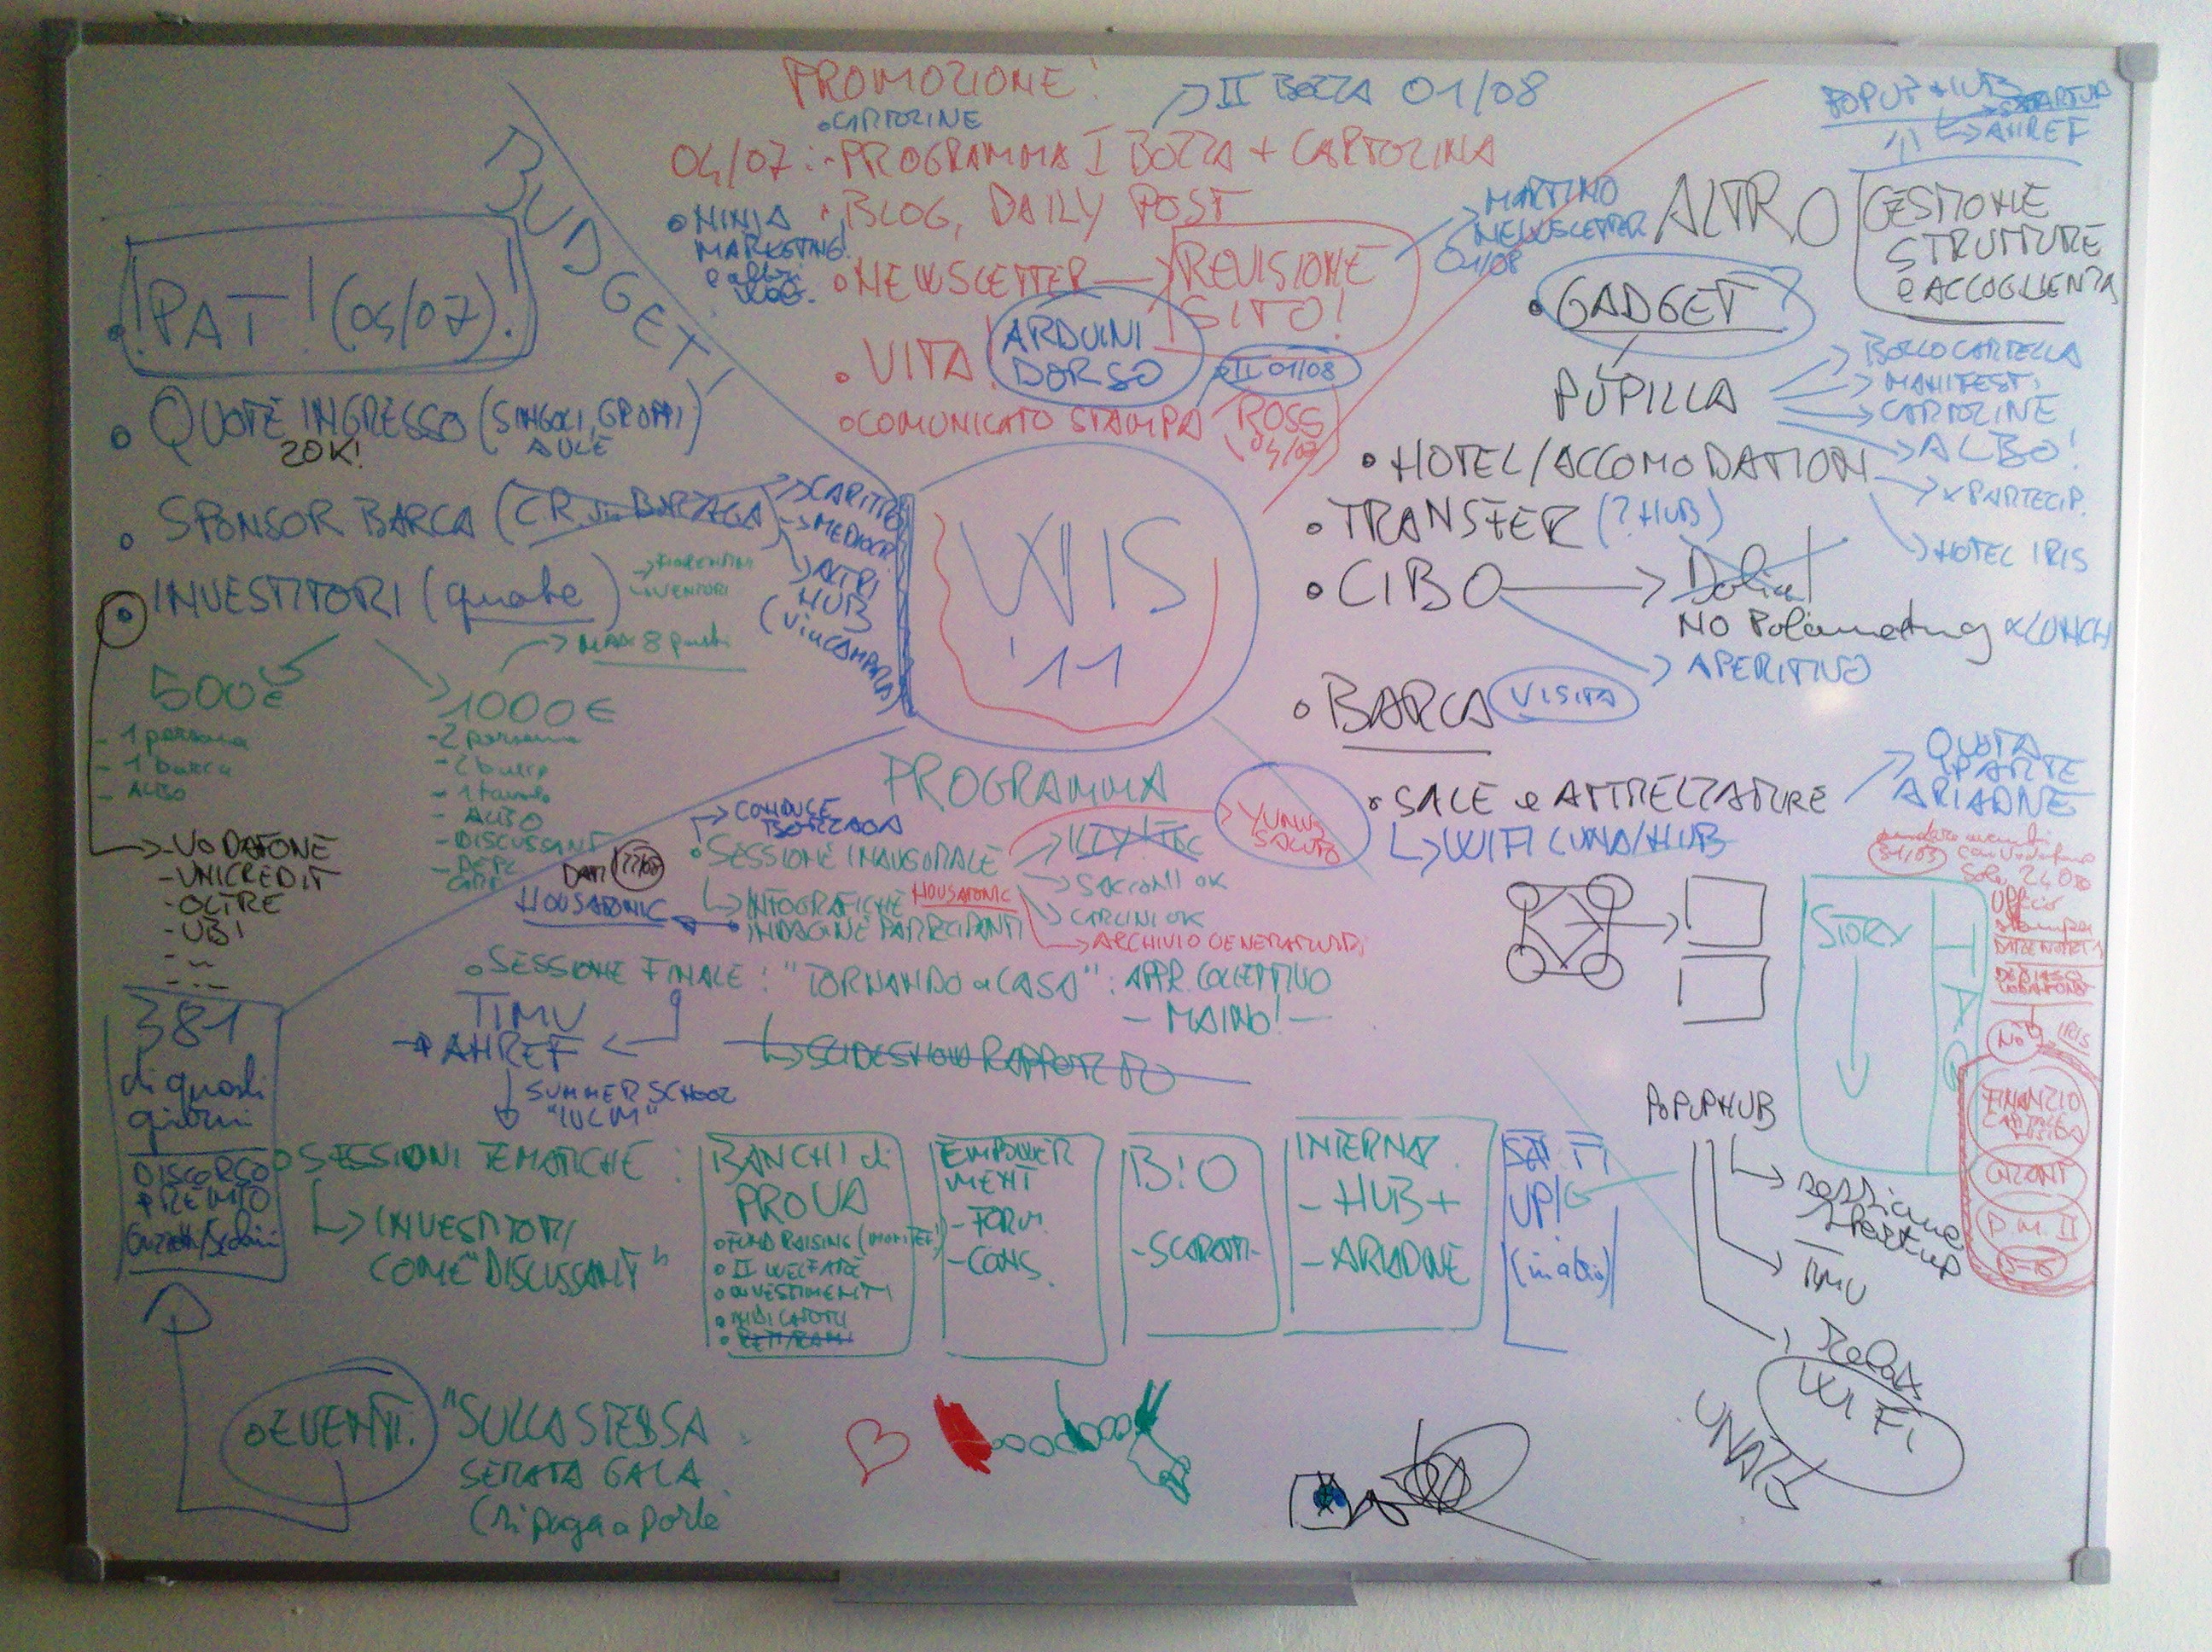 PROMOZIONE!
• CARTOZINE
II BOZZA 01/08
04/07: - PROGRAMMA I BOZZA + CARTOZINA
• BLOG, DAILY POST
• NINJA
MARKETING!
e altri
• NEWSLETTER
REVISIONE
SITO!
MARTINO
NEWSLETTER
01/08
• VITA
ARDUINI
DORSO
II 01/08
• COMUNICATO STAMPA
ROSS
04/07
BUDGET!
PAT! (04/07)!
• QUOTE INGRESSO (SINGOLI, GRUPPI
AULE
20K!
• SPONSOR BARCA
CARITRO
MEDIOCR.
ALTRI
HUB
• INVESTITORI (quote)
MAX 8 posti
500€
- 1 persona
- 1 barca
- ALBO
1000€
- 2 persone
- 2 barca
- 1 tavolo
- ALBO
- DISCUSSANT
- VODAFONE
- UNICREDIT
- OLTRE
- UBI
- ...
- ...
WIS
'11
ALTRO
POPUP HUB
AHREF
GESTIONE
STRUTTURE
e ACCOGLIENZA
• GADGET?
PUPILLA
BOLLO CARTELLA
MANIFESTI
CARTOZINE
ALBO!
• HOTEL/ACCOMODATION
x PARTECIP.
HOTEL IRIS
• TRANSFER (? HUB)
• CIBO
NO Polimeeting x LUNCH
APERITIVO
• BARCA
VISITA
• SALE e ATTREZZATURE
QUOTA
PARTE
ARIADNE
WIFI LUNA/HUB
STORY
PROGRAMMA
CONDUCE
BORZAGA
YUNUS
SALUTO
• SESSIONE INAUGURALE
SACCONI OK
CARLINI OK
ARCHIVIO GENERATIVITÀ
INFOGRAFICHE
HOUSATONIC
INDAGINE PARTECIPANTI
HOUSATONIC
• SESSIONE FINALE: "TORNANDO a CASA": APPR. COLLETTIVO
- MAINO! -
TIMU
AHREF
SLIDESHOW RAPPORTO
SUMMER SCHOOL
"IULM"
381
di quali
giorni
DISCORSO
PREMIO
• SESSIONI TEMATICHE:
INVESTITORI
COME "DISCUSSANT"
BANCHI di
PROVA
• FUND RAISING
• II WELFARE
• INVESTIMENTI
• INDICATORI
EMPOWER
MENT
- FORM.
- CONS.
BIO
- SCARAM -
INTERNAZ.
- HUB +
- ARIADNE
UP!
POPUPHUB
sessione
startup
TIMU
WI FI
UNATE
NO
IRIS
• EVENTI:
"SULLA STESSA
SERATA GALA
(si paga a parte